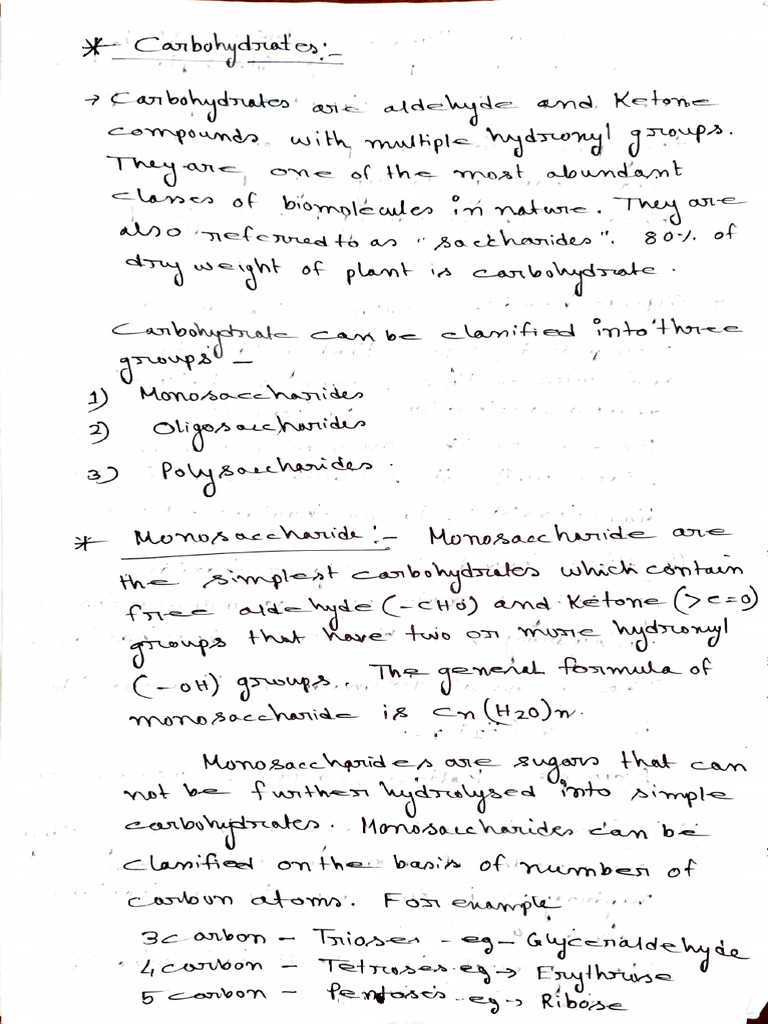 * Carbohydrates:-
→ Carbohydrates are aldehyde and Ketone
compounds with multiple hydroxyl groups.
They are one of the most abundant
classes of biomolecules in nature. They are
also referred to as "saccharides". 80% of
dry weight of plant is carbohydrate.
Carbohydrate can be classified into three
groups -
1) Monosaccharides
2) Oligosaccharides
3) Polysaccharides.
* Monosaccharide:- Monosaccharide are
the simplest carbohydrates which contain
free aldehyde (-CHO) and Ketone (>C=O)
groups that have two or more hydroxyl
(-OH) groups. The general formula of
monosaccharide is Cn(H2O)n.
Monosaccharides are sugars that can
not be further hydrolysed into simple
carbohydrates. Monosaccharides can be
classified on the basis of number of
carbon atoms. For example
3 carbon - Trioses - eg - Glyceraldehyde
4 carbon - Tetroses eg → Erythrose
5 carbon - Pentoses - eg → Ribose